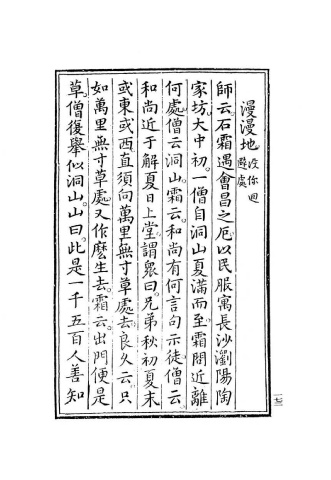 漫漫地没你迴避處
師云。石霜遇會昌之厄。以民服寓長沙瀏陽陶
家坊。大中初。一僧自洞山夏滿而至。霜問近離
何處。僧云。洞山。霜云。和尚有何言句示徒。僧云
和尚近于解夏日上堂。謂衆曰。兄弟秋初夏末
或東或西。直須向萬里無寸草處去。良久云。只
如萬里無寸草處。又作麽生去。霜云。出門便是
草。僧復舉似洞山。山曰。此是一千五百人善知